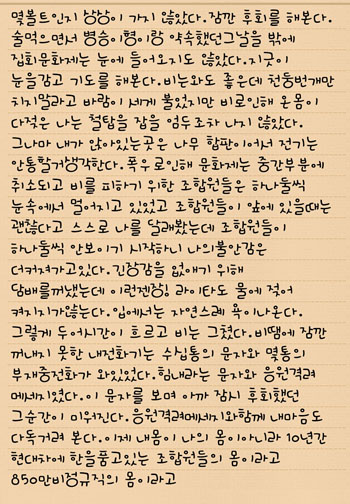 몇볼트인지 상상이 가지 않았다. 잠깐 후회를 해본다.
술먹으면서 병승이형이랑 약속했던그날을 밖에
집회문화제는 눈에 들어오지도 않았다. 지긋이
눈을감고 기도를 해본다. 비는와도 좋은데 천둥번개만
치지말라고 바람이 세게 불었지만 비로인해 온몸이
다젖은 나는 철탑을 잡을 엄두조차 나지 않았다.
그나마 내가 앉아있는곳은 나무 합판이어서 전기는
안통할거생각한다. 폭우로인해 문화제는 중간부분에
취소되고 비를 피하기 위한 조합원들은 하나둘씩
눈속에서 멀어지고 있었고 조합원들이 앞에 있을때는
괜찮다고 스스로 나를 달래봤는데 조합원들이
하나둘씩 안보이기 시작하니 나의불안감은
더커져가고있다. 긴장감을 없애기 위해
담배를꺼냈는데 이런젠장! 라이타도 물에 젖어
켜지지가않는다. 입에서는 자연스레 욕이나온다.
그렇게 두어시간이 흐르고 비는 그쳤다. 비땜에 잠깐
꺼내지 못한 내전화기는 수십통의 문자와 몇통의
부재중전화가 와있었다. 힘내라는 문자와 응원격려
메세지였다. 이 문자를 보며 아까 잠시 후회했던
그순간이 미워진다. 응원격려메세지와함께 내마음도
다독거려 본다. 이제 내몸이 나의 몸이아니라 10년간
현대차에 한을품고있는 조합원들의 몸이라고
850만비정규직의 몸이라고